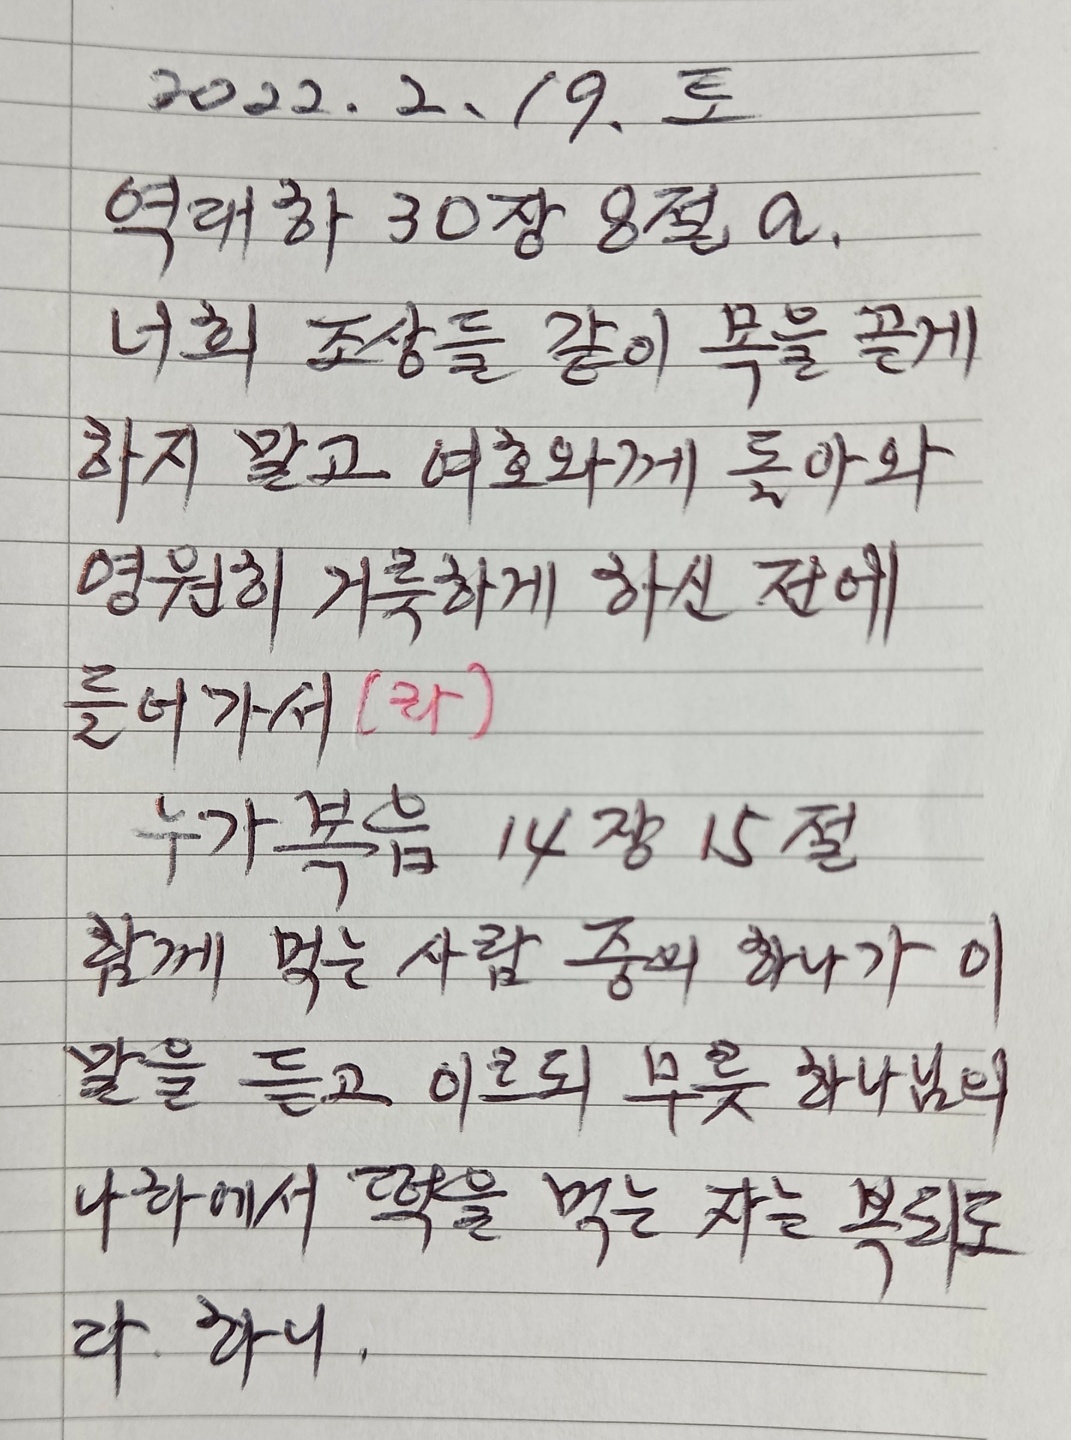 2022. 2. 19. 토
역대하 30장 8절 a.
너희 조상들 같이 목을 곧게
하지 말고 여호와께 돌아와
영원히 거룩하게 하신 전에
들어가서 (라)
누가복음 14장 15절
함께 먹는 사람 중의 하나가 이
말을 듣고 이르되 무릇 하나님의
나라에서 떡을 먹는 자는 복되도
다. 하니.